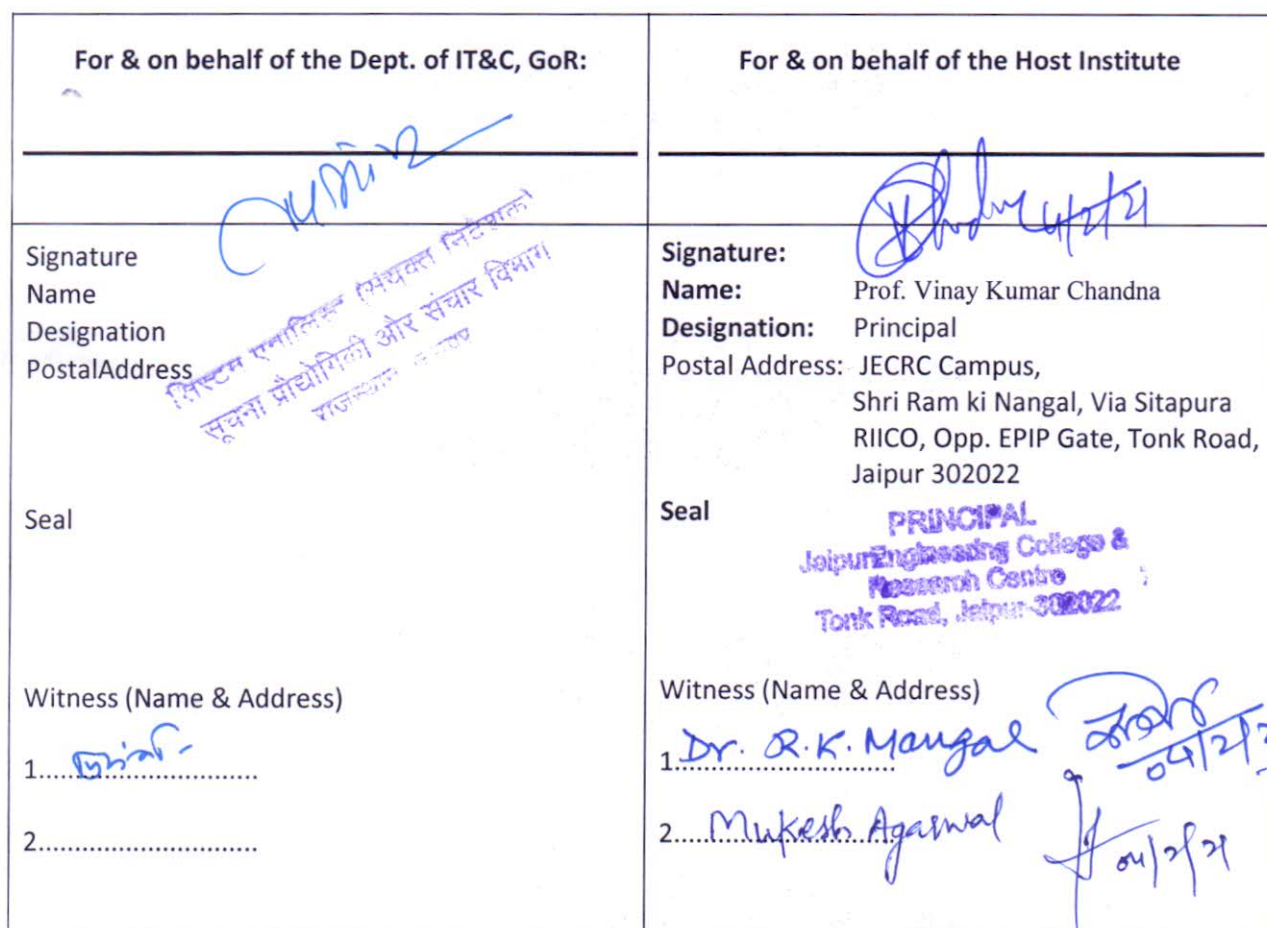 For & on behalf of the Dept. of IT&C, GoR:
Signature
Name
Designation
PostalAddress
सिस्टम एनालिस्ट (संयुक्त निदेशक)
सूचना प्रौद्योगिकी और संचार विभाग
राजस्थान
Seal
Witness (Name & Address)
1..............................
2..............................
For & on behalf of the Host Institute
4/2/21
Signature:
Name: Prof. Vinay Kumar Chandna
Designation: Principal
Postal Address: JECRC Campus,
Shri Ram ki Nangal, Via Sitapura
RIICO, Opp. EPIP Gate, Tonk Road,
Jaipur 302022
Seal
PRINCIPAL
Jaipur Engineering College &
Research Centre
Tonk Road, Jaipur-302022
Witness (Name & Address)
1. Dr. R.K. Mangal 04/2/2
2. Mukesh Agarwal 04/2/21